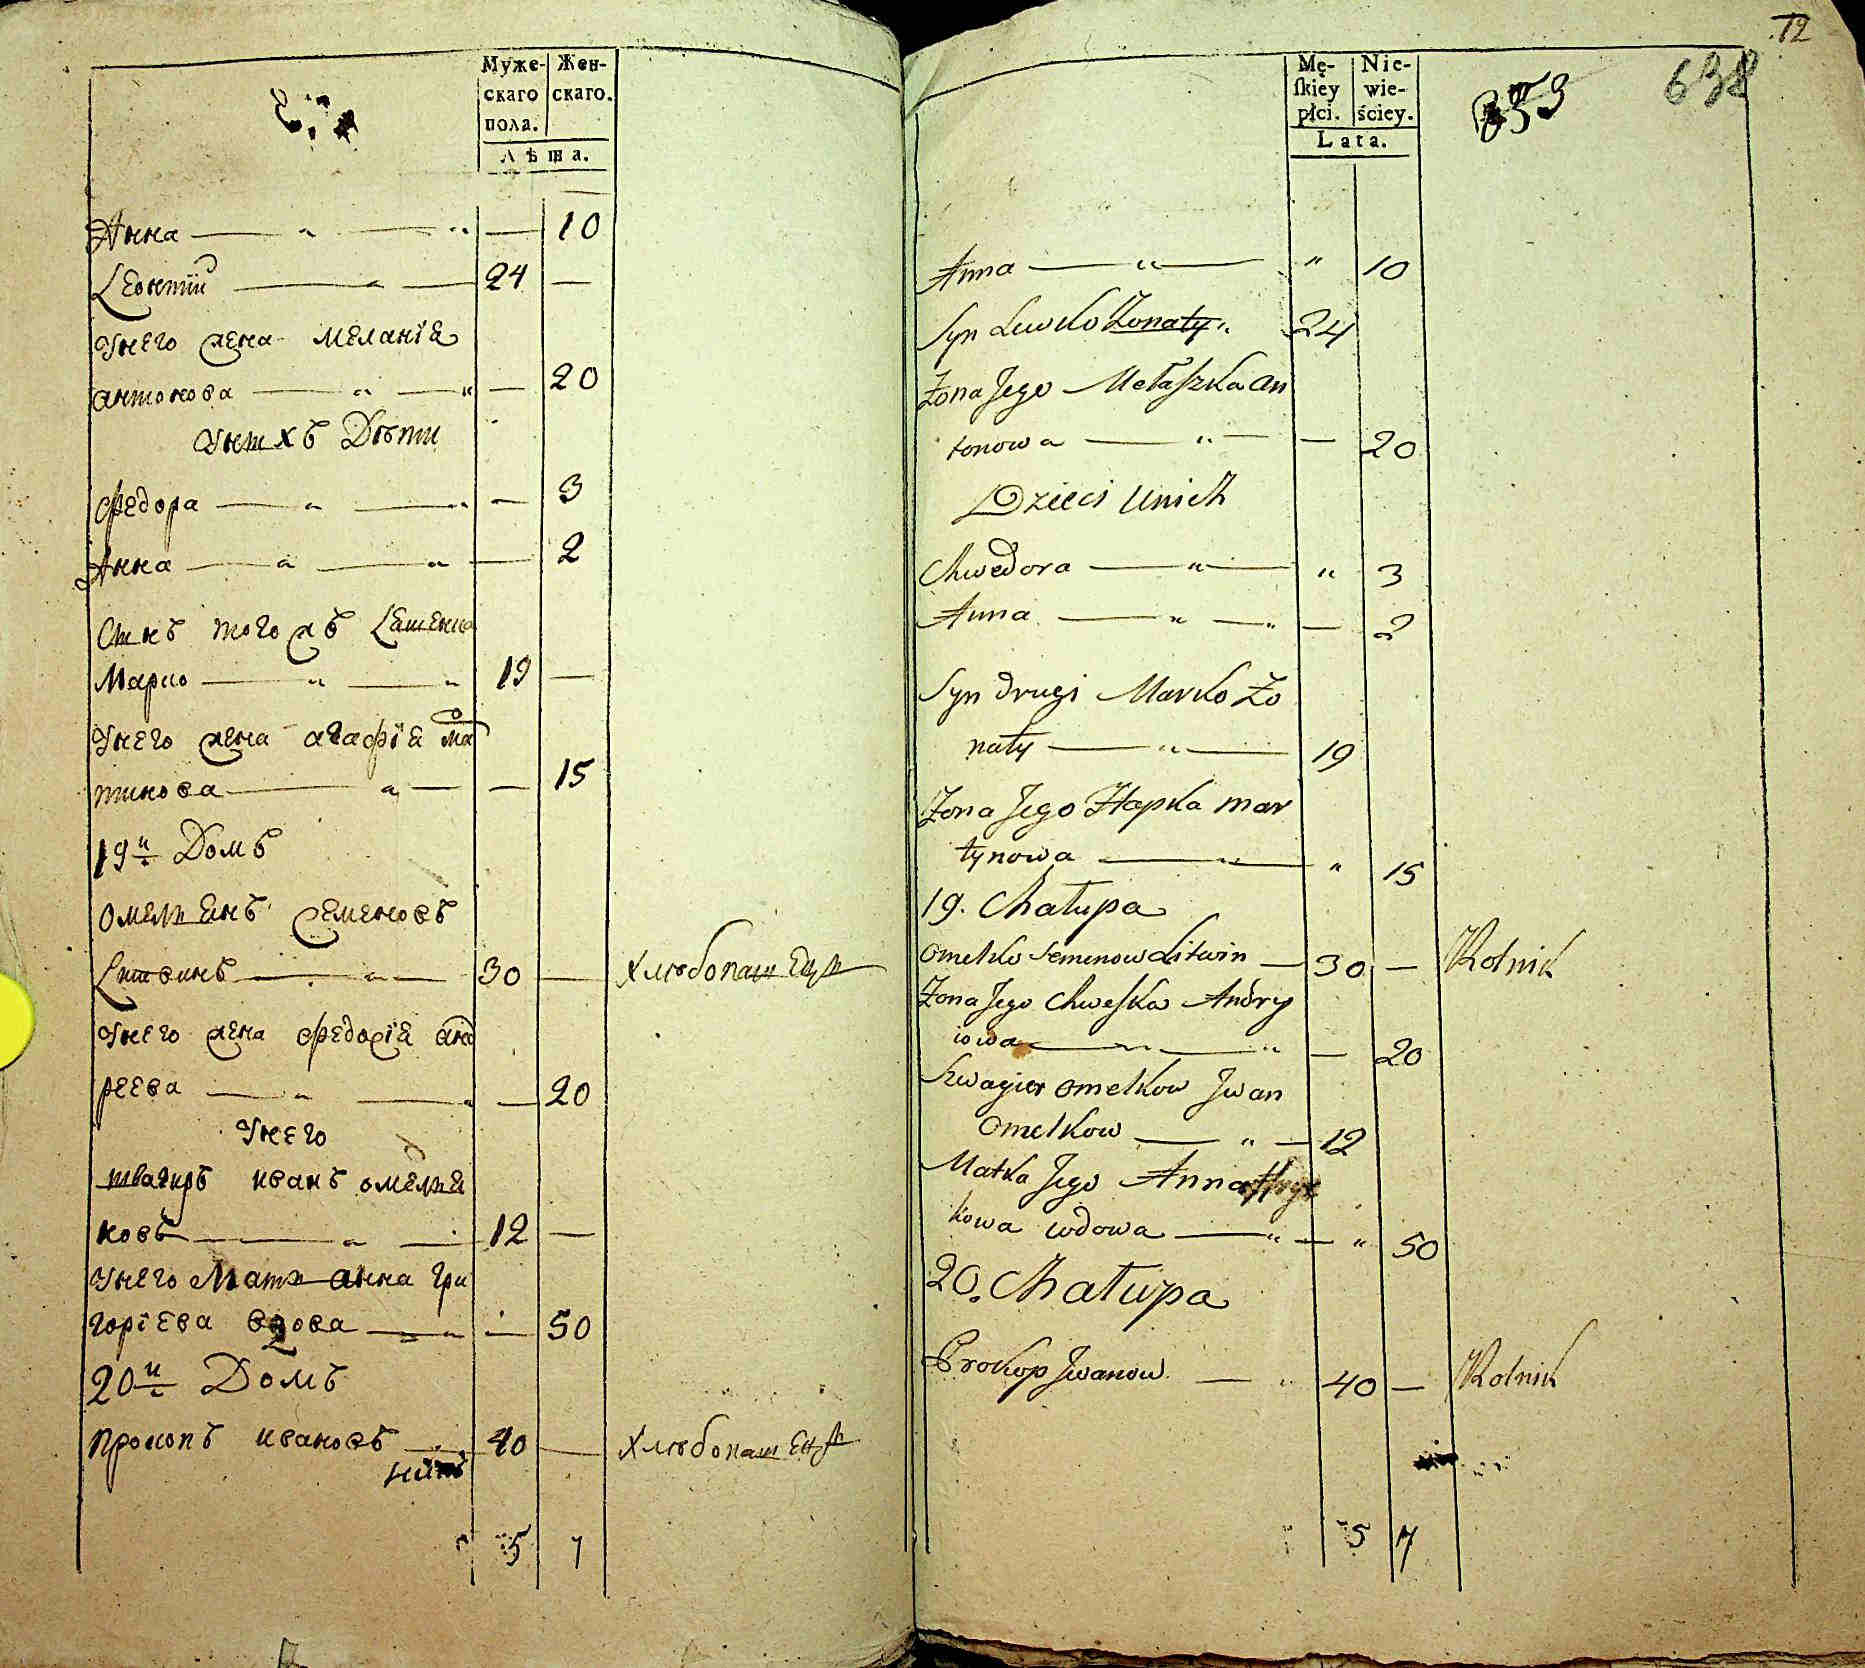 Муже- Жен-
скаго скаго.
пола.
Лѣта.
Анна — " — " — 10
Леонтїй — " — 24 —
Унего жена Меланїя
антонова — " — " — 20
Унихъ Дѣти
Федора — " — " — 3
Анна — " — " — 2
Сынъ тогожъ
Марко — " — " 19 —
Унего жена агафїя Ма
тинова — " — — 15
19й Домъ
Омельянъ Семеновъ
Литвинъ — " — 30 — Хлѣбопашецъ
Унего жена Федосїя анд
реева — " — " — 20
Унего
швагиръ иванъ омелья
новъ — " — 12 —
Унего Мать анна Гри
горїева вдова — " — 50
20й Домъ
Прокопъ ивановъ — 40 — Хлѣбопашецъ
5 7
12
638
Mę- Nie-
skiey wie-
płci. ściey.
Lata.
Anna — " — " 10
Syn Lewko Żonaty " 24
Żona Jego Mełaszka An
tonowa — " — — 20
Dzieci Unich
Chwedora — " — " 3
Anna — " — " — 2
Syn drugi Marko Żo
naty — " — 19
Żona Jego Hapka Mar
tynowa — " — " 15
19. Chałupa
Omelko Semenow Litwin — 30 — Rolnik
Żona Jego Chweska Andry
iowa — " — " — 20
Szwagier Omelkow Jwan
Omelkow — " — 12
Matka Jego Anna Hryć
kowa wdowa — " — " 50
20. Chałupa
Prokop Jwanow — " 40 — Rolnik
5 7